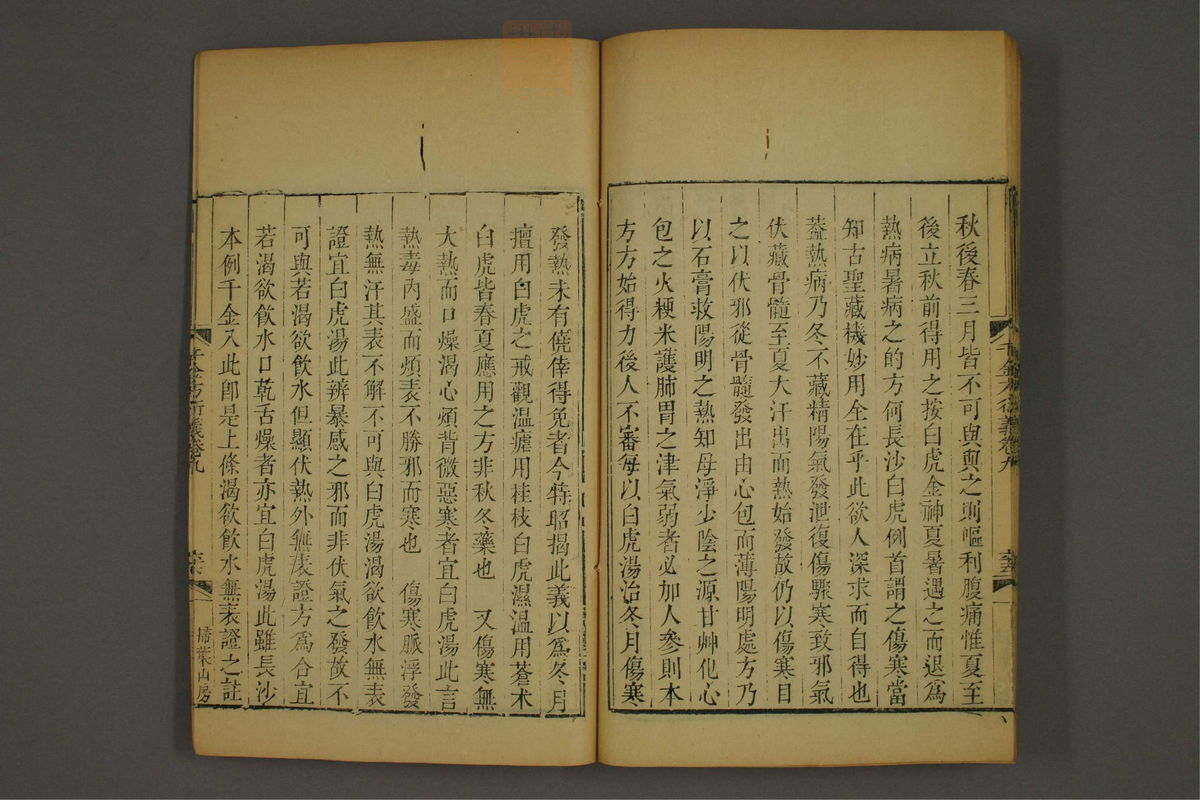 秋後春三月皆不可與與之則嘔利腹痛惟夏至
後立秋前得用之按白虎金神夏暑遇之而退爲
熱病暑病之的方何長沙白虎例首謂之傷寒當
知古聖藏機妙用全在乎此欲人深求而自得也
葢熱病乃冬不藏精陽氣發泄復傷驟寒致邪氣
伏藏骨髓至夏大汗出而熱始發故仍以傷寒目
之以伏邪從骨髓發出由心包而薄陽明處方乃
以石膏救陽明之熱知母淨少陰之源甘艸化心
包之火粳米護肺胃之津氣弱者必加人參則本
方方始得力後人不審每以白虎湯治冬月傷寒
千金方衍義卷九
發熱未有僥倖得免者今特昭揭此義以爲冬月
擅用白虎之戒觀溫瘧用桂枝白虎濕溫用蒼术
白虎皆春夏應用之方非秋冬藥也　又傷寒無
大熱而口燥渴心煩背微惡寒者宜白虎湯此言
熱毒內盛而煩表不勝邪而寒也　傷寒脈浮發
熱無汗其表不解不可與白虎湯渴欲飮水無表
證宜白虎湯此辨暴感之邪而非伏氣之發故不
可與若渴欲飮水但顯伏熱外無表證方爲合宜
若渴欲飮水口乾舌燥者亦宜白虎湯此雖長沙
本例千金入此卽是上條渴欲飮水無表證之註
千金方衍義卷九
掃葉山房